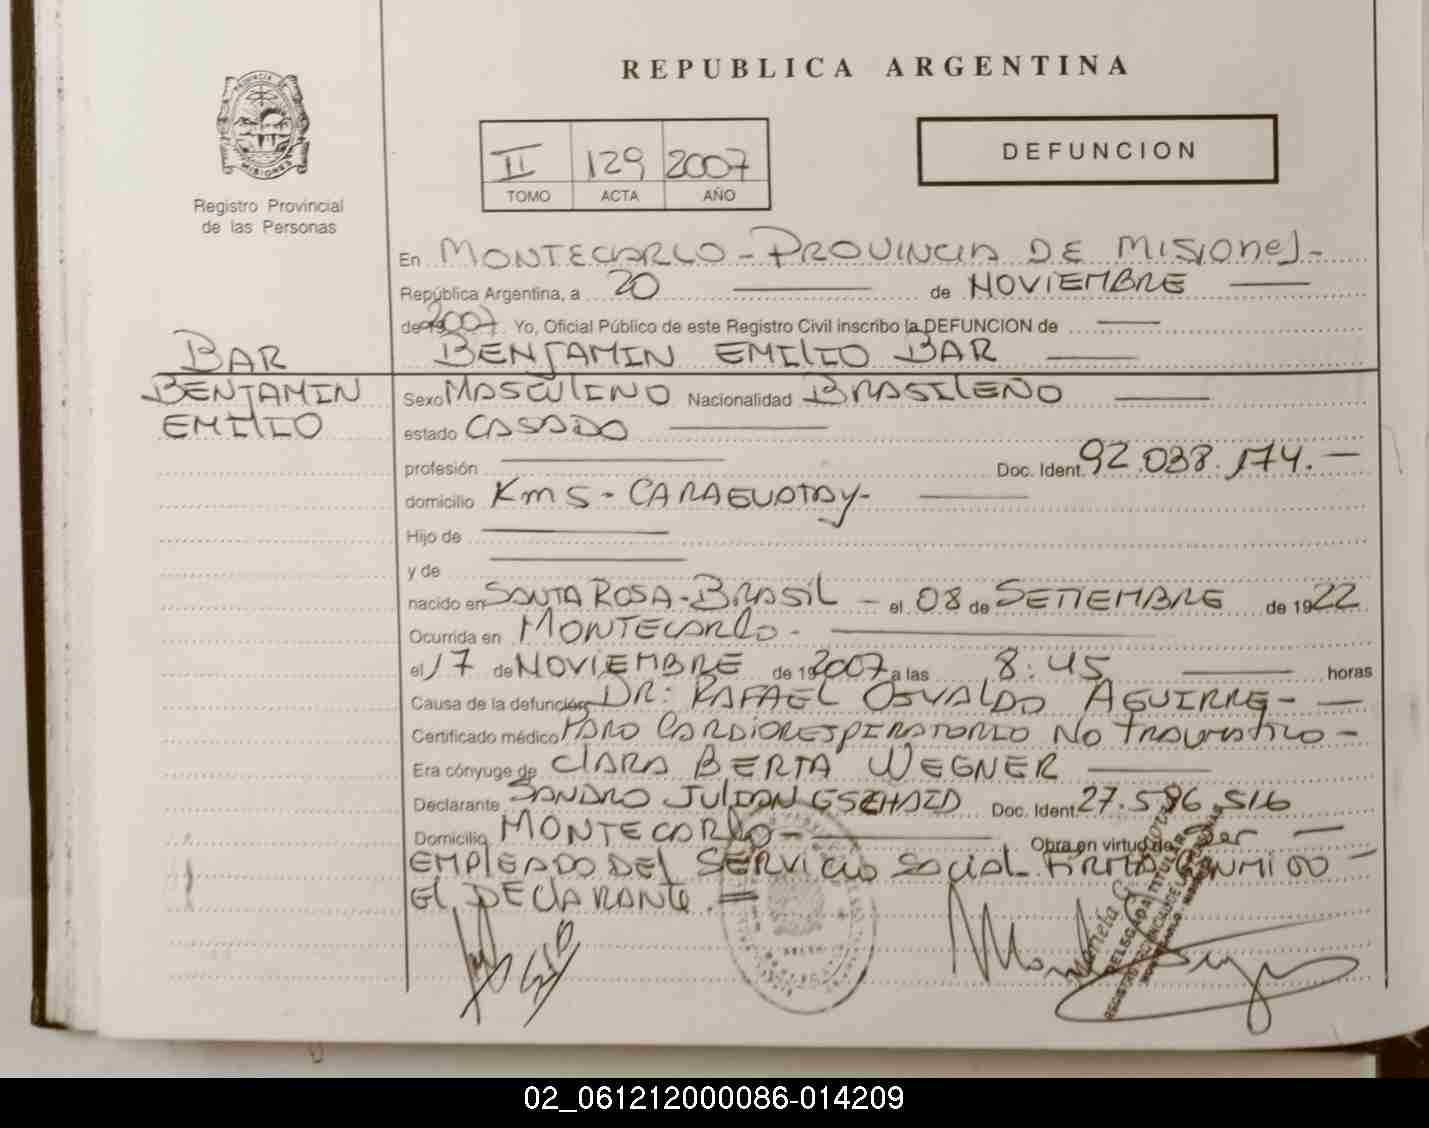 REPUBLICA ARGENTINA
PROVINCIA DE
MISIONES
Registro Provincial
de las Personas
II 129 2007
TOMO ACTA AÑO
DEFUNCION
En MONTECARLO - PROVINCIA DE MISIONES -
República Argentina, a 20 de NOVIEMBRE
de 19 2007 Yo, Oficial Público de este Registro Civil inscribo la DEFUNCION de
BENJAMIN EMILIO BAR
BAR
BENJAMIN
EMILIO
Sexo MASCULINO Nacionalidad BRASILEÑO
estado CASADO
profesión Doc. Ident. 92.038.174. -
domicilio Km 5 - CARAGUATAY -
Hijo de
y de
nacido en SANTA ROSA - BRASIL - el 08 de SETIEMBRE de 1922
Ocurrida en MONTECARLO -
el 17 de NOVIEMBRE de 19 2007 a las 8:45 horas
Causa de la defunción DR: RAFAEL OSVALDO AGUIRRE -
Certificado médico PARO CARDIORESPIRATORIO NO TRAUMATICO -
Era cónyuge de CLARA BERTA WEGNER
Declarante SANDRO JULIAN Doc. Ident. 27.596.516
Domicilio MONTECARLO - Obra en virtud de Ser -
EMPLEADO DEL SERVICIO SOCIAL FIRMA CONMIGO -
EL DECLARANTE. =
DELEGADA TITULAR
02_061212000086-014209